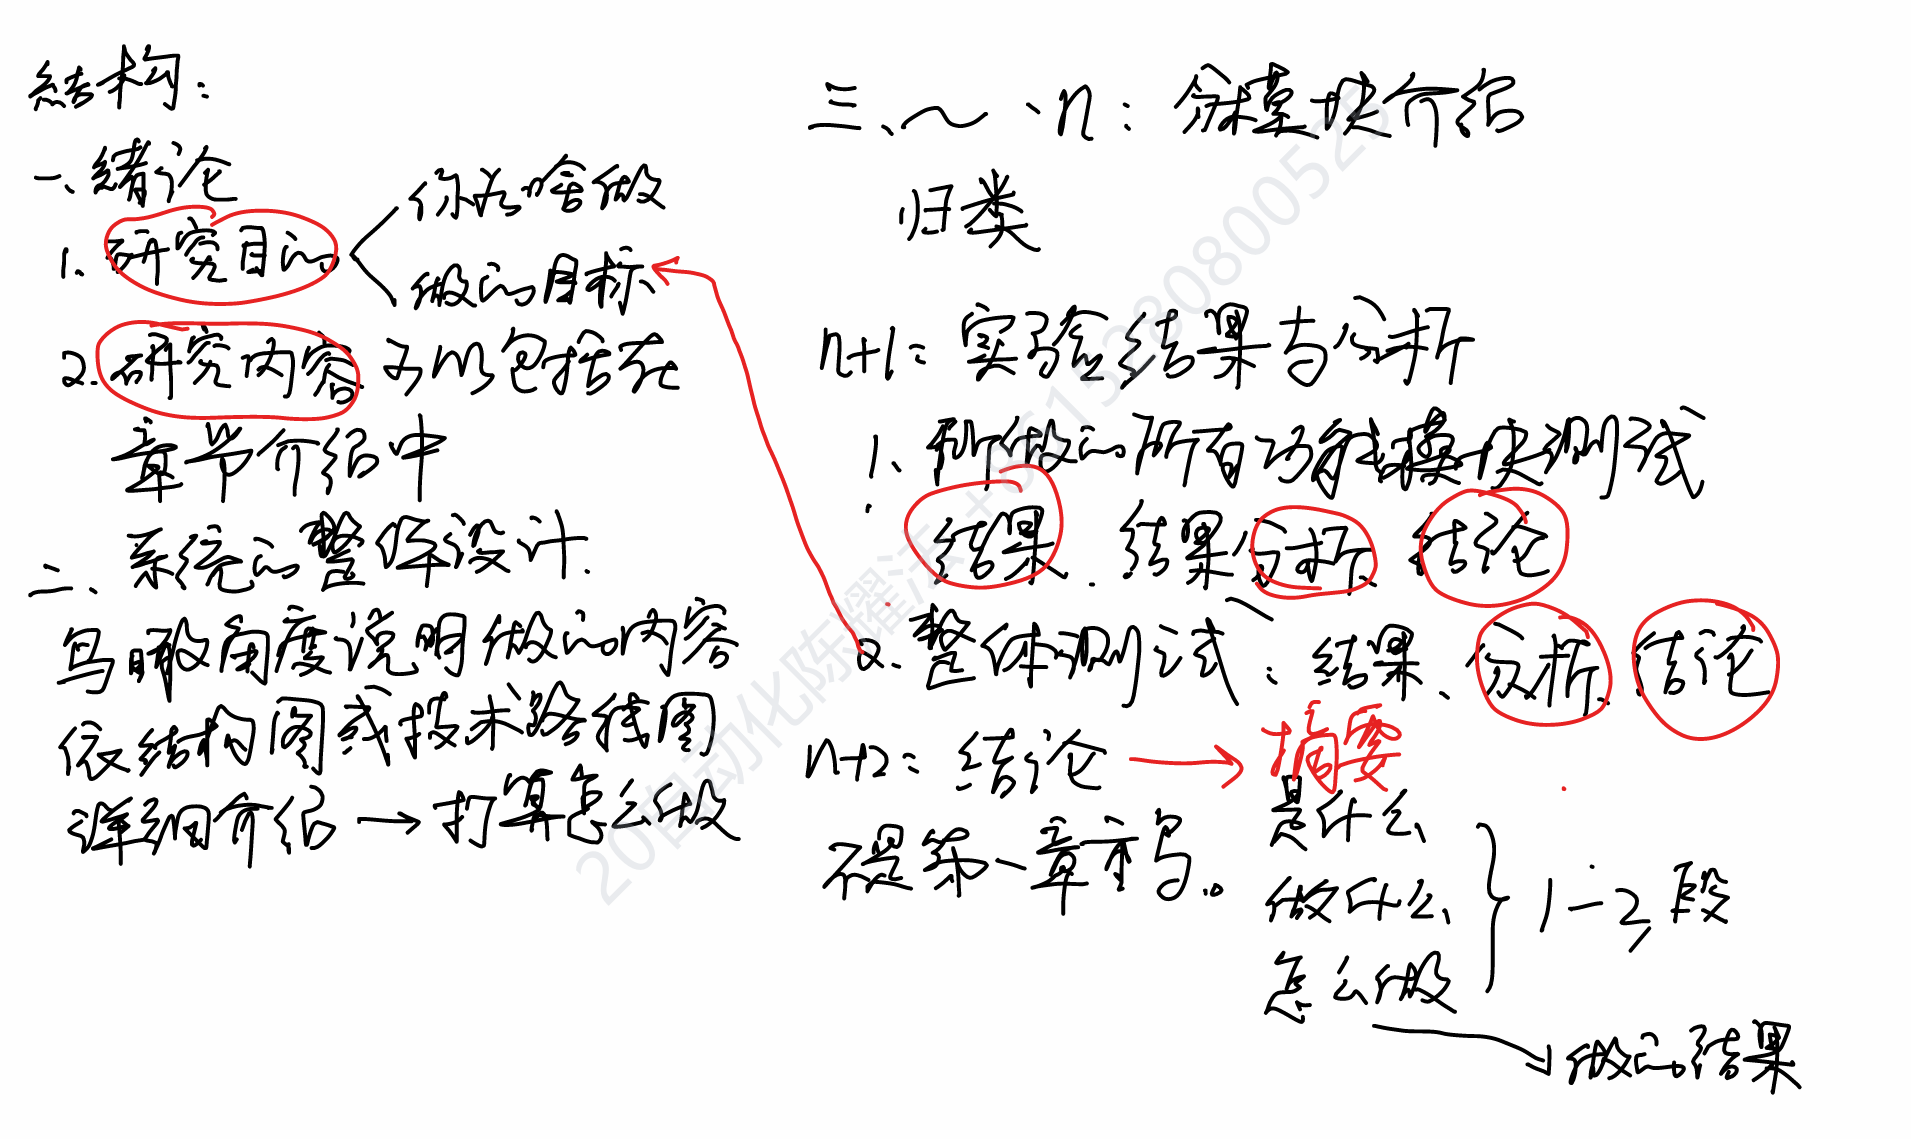 结构：
一、绪论
1. 研究目的
你为啥做
做的目标
2. 研究内容 可以包括在
章节介绍中
二、系统的整体设计.
鸟瞰角度说明做的内容
依结构图或技术路线图
详细介绍→打算怎么做
三、～、n：分模块介绍
归类
n+1：实验结果与分析
1、所做的所有功能模块测试
结果、结果分析、结论
2. 整体测试：结果、分析、结论
n+2：结论 → 摘要
不是第一章章节。
是什么
做什么
怎么做
1-2段
做的结果
20自动化陈耀法+8615280800525